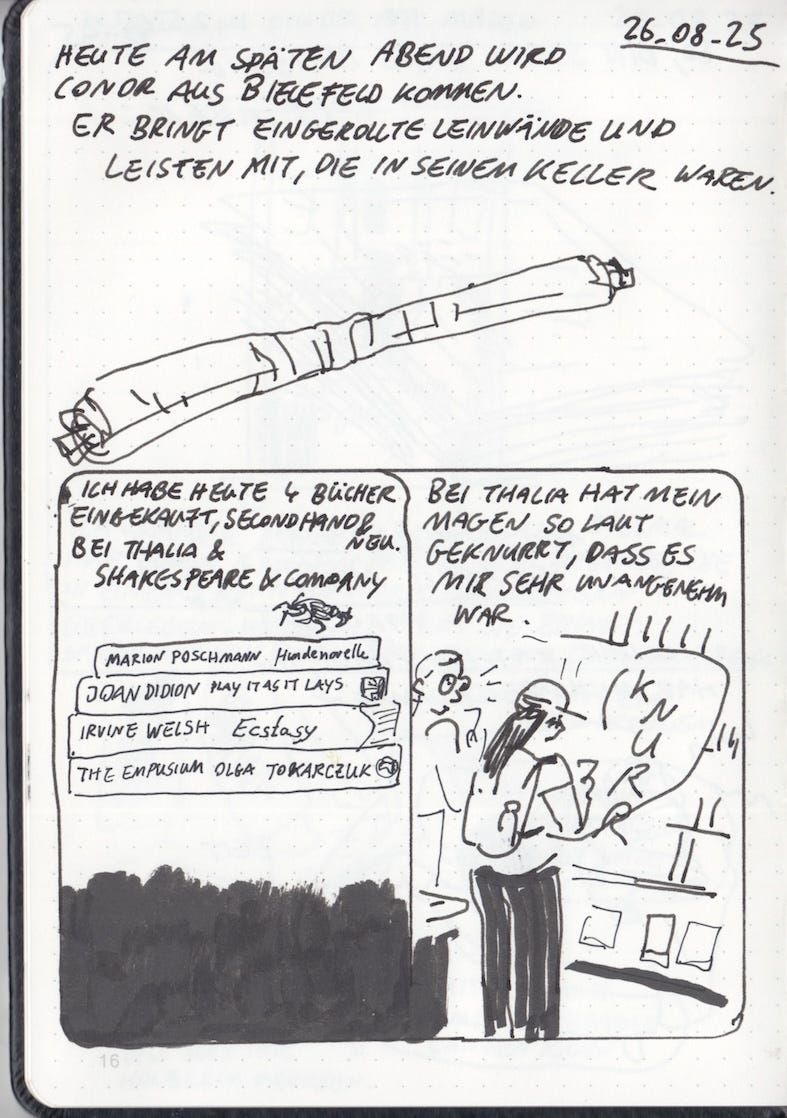 26-08-25
HEUTE AM SPÄTEN ABEND WIRD
CONOR AUS BIELEFELD KOMMEN.
ER BRINGT EINGEROLLTE LEINWÄNDE UND
LEISTEN MIT, DIE IN SEINEM KELLER WAREN.
ICH HABE HEUTE 4 BÜCHER
EINGEKAUFT, SECONDHAND &
NEU.
BEI THALIA &
SHAKESPEARE & COMPANY
MARION POSCHMANN Hundenovelle
JOAN DIDION PLAY IT AS IT LAYS
IRVINE WELSH Ecstasy
THE EMPUSIUM OLGA TOKARCZUK
BEI THALIA HAT MEIN
MAGEN SO LAUT
GEKNURRT, DASS ES
MIR SEHR UNANGENEHM
WAR.
KNURRR
16